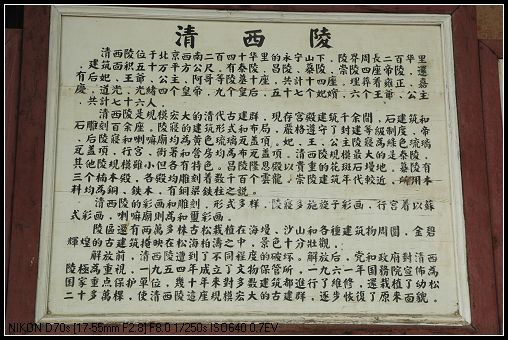 清西陵
清西陵位于北京西南二百四十华里的永宁山下，陵界周长二百华里，
建筑面积五万平方公尺。有泰陵、昌陵、慕陵、崇陵四座帝陵，還
有后妃、王爺、公主、阿哥等陵墓十座，共計十四座，埋葬着雍正、嘉
慶、道光、光緒四個皇帝，九個皇后，五十七個妃嬪，六個王爺、公主
共計七十六人。
清西陵是規模宏大的清代古建群，現存宮殿建筑千余間，石建筑和
石雕刻百余座。陵寢的建筑形式和布局，嚴格遵守了封建等級制度，帝
后陵寢和喇嘛廟均為黃色琉璃瓦蓋頂。妃、王、公主陵寢為綠色琉璃
瓦蓋頂，行宮、衙署和營房均為布瓦蓋頂。清西陵規模最大的是泰陵，
其他陵規模雖小但各有特色。昌陵隆恩殿以貴重的花斑石墁地。慕陵有
三个楠木殿，各殿均雕刻着数千百个雲龍。崇陵建筑年代較近，所用木
料均為銅、鉄木，有銅梁鉄柱之説。
清西陵的彩画和雕刻，形式多样，陵寢多施旋子彩画，行宮着以蘇
式彩画，喇嘛廟則為和璽彩画。
陵區還有两万多株古松栽植在海墁、沙山和各種建筑物周圍，金碧
輝煌的古建筑掩映在松海柏濤之中，景色十分壯觀。
解放前，清西陵遭到了不同程度的破坏。解放后，党和政府對清西
陵極為重視，一九五四年成立了文物保管所，一九六一年国務院宣佈為
国家重点保護單位，幾十年来對多数建筑都進行了維修，還栽植了幼松
二十多萬棵，使清西陵這座規模宏大的古建群，逐步恢復了原来面貌。
NIKON D70s [17-55mm F2.8] F8.0 1/250s ISO640 0.7EV